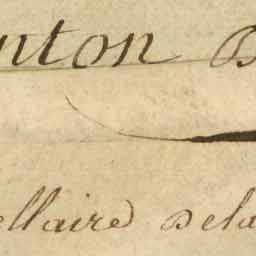 nton D
ellaire Dela